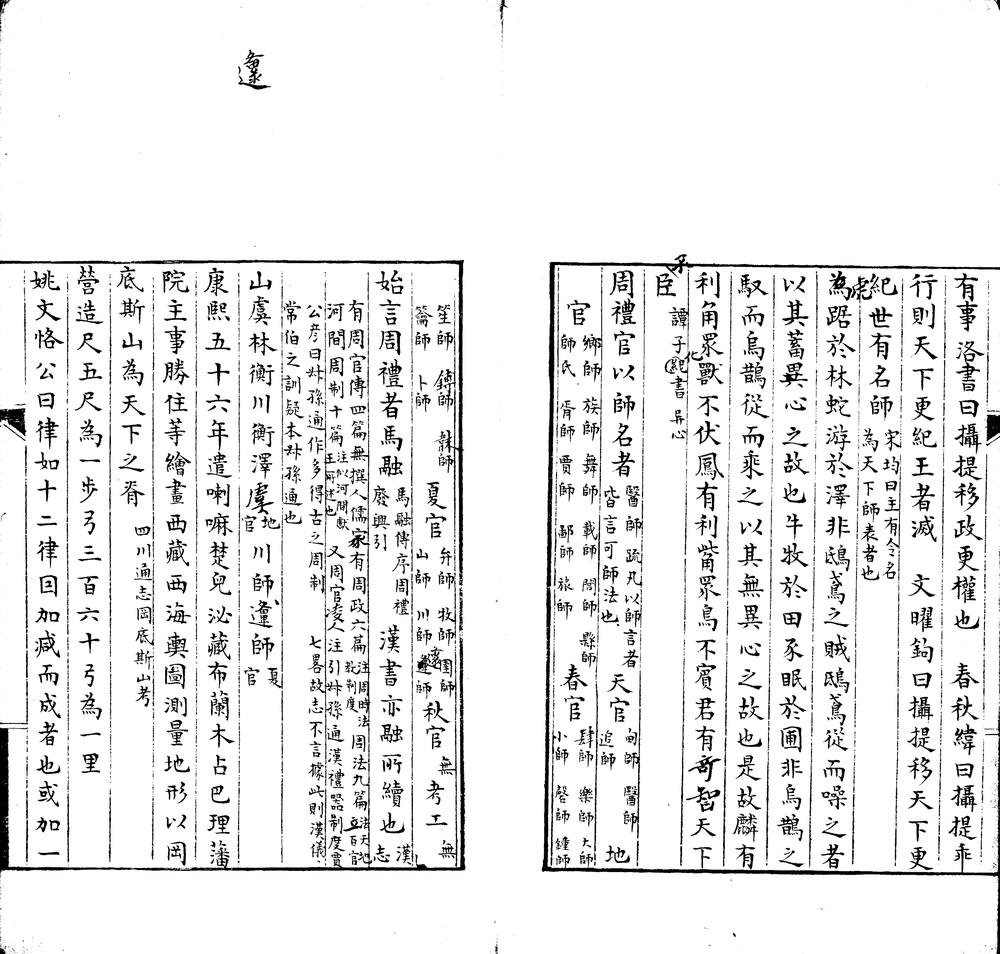 有事洛書曰攝提移政更權也　春秋緯曰攝提乖
行則天下更紀王者滅　文曜鉤曰攝提移天下更
紀世有名師宋均曰主有令名為天下師表者也
虎
為踞於林蛇游於澤非鴟鳶之賊鴟鳶從而噪之者
以其蓄異心之故也牛牧於田豕眠於圃非烏鵲之
馭而烏鵲從而乘之以其無異心之故也是故麟有
利角眾獸不伏鳳有利觜眾鳥不賓君有奇智天下
不
臣譚子化書異心
周禮官以師名者醫師疏凡以師言者皆言可師法也天官甸師　醫師　追師地
官鄉師　族師　舞師　載師　閭師　縣師　師氏　胥師　賈師　鄙師　旅師春官肆師　樂師　大師　小師　磬師　鍾師
笙師　鎛師　韎師　籥師　卜師夏官弁師　牧師　圉師　山師　川師　邍師秋官無考工無
始言周禮者馬融馬融傳序周禮廢興引漢書亦融所續也漢志
有周官傳四篇無撰人儒家有周政六篇注周時法教制度周法九篇注法天地立百官
河間周制十篇注似河間獻王所述也又周官凌人注引叔孫通漢禮器制度賈
公彥曰叔孫通作多得古之周制　七畧故志不言據此則漢儀
常伯之訓疑本叔孫通也
山虞林衡川衡澤虞地官川師邍師夏官
邍
康熙五十六年遣喇嘛楚兒泌藏布蘭木占巴理藩
院主事勝住等繪畫西藏西海輿圖測量地形以岡
底斯山為天下之脊四川通志岡底斯山考
營造尺五尺為一步弓三百六十弓為一里
姚文恪公曰律如十二律因加減而成者也或加一